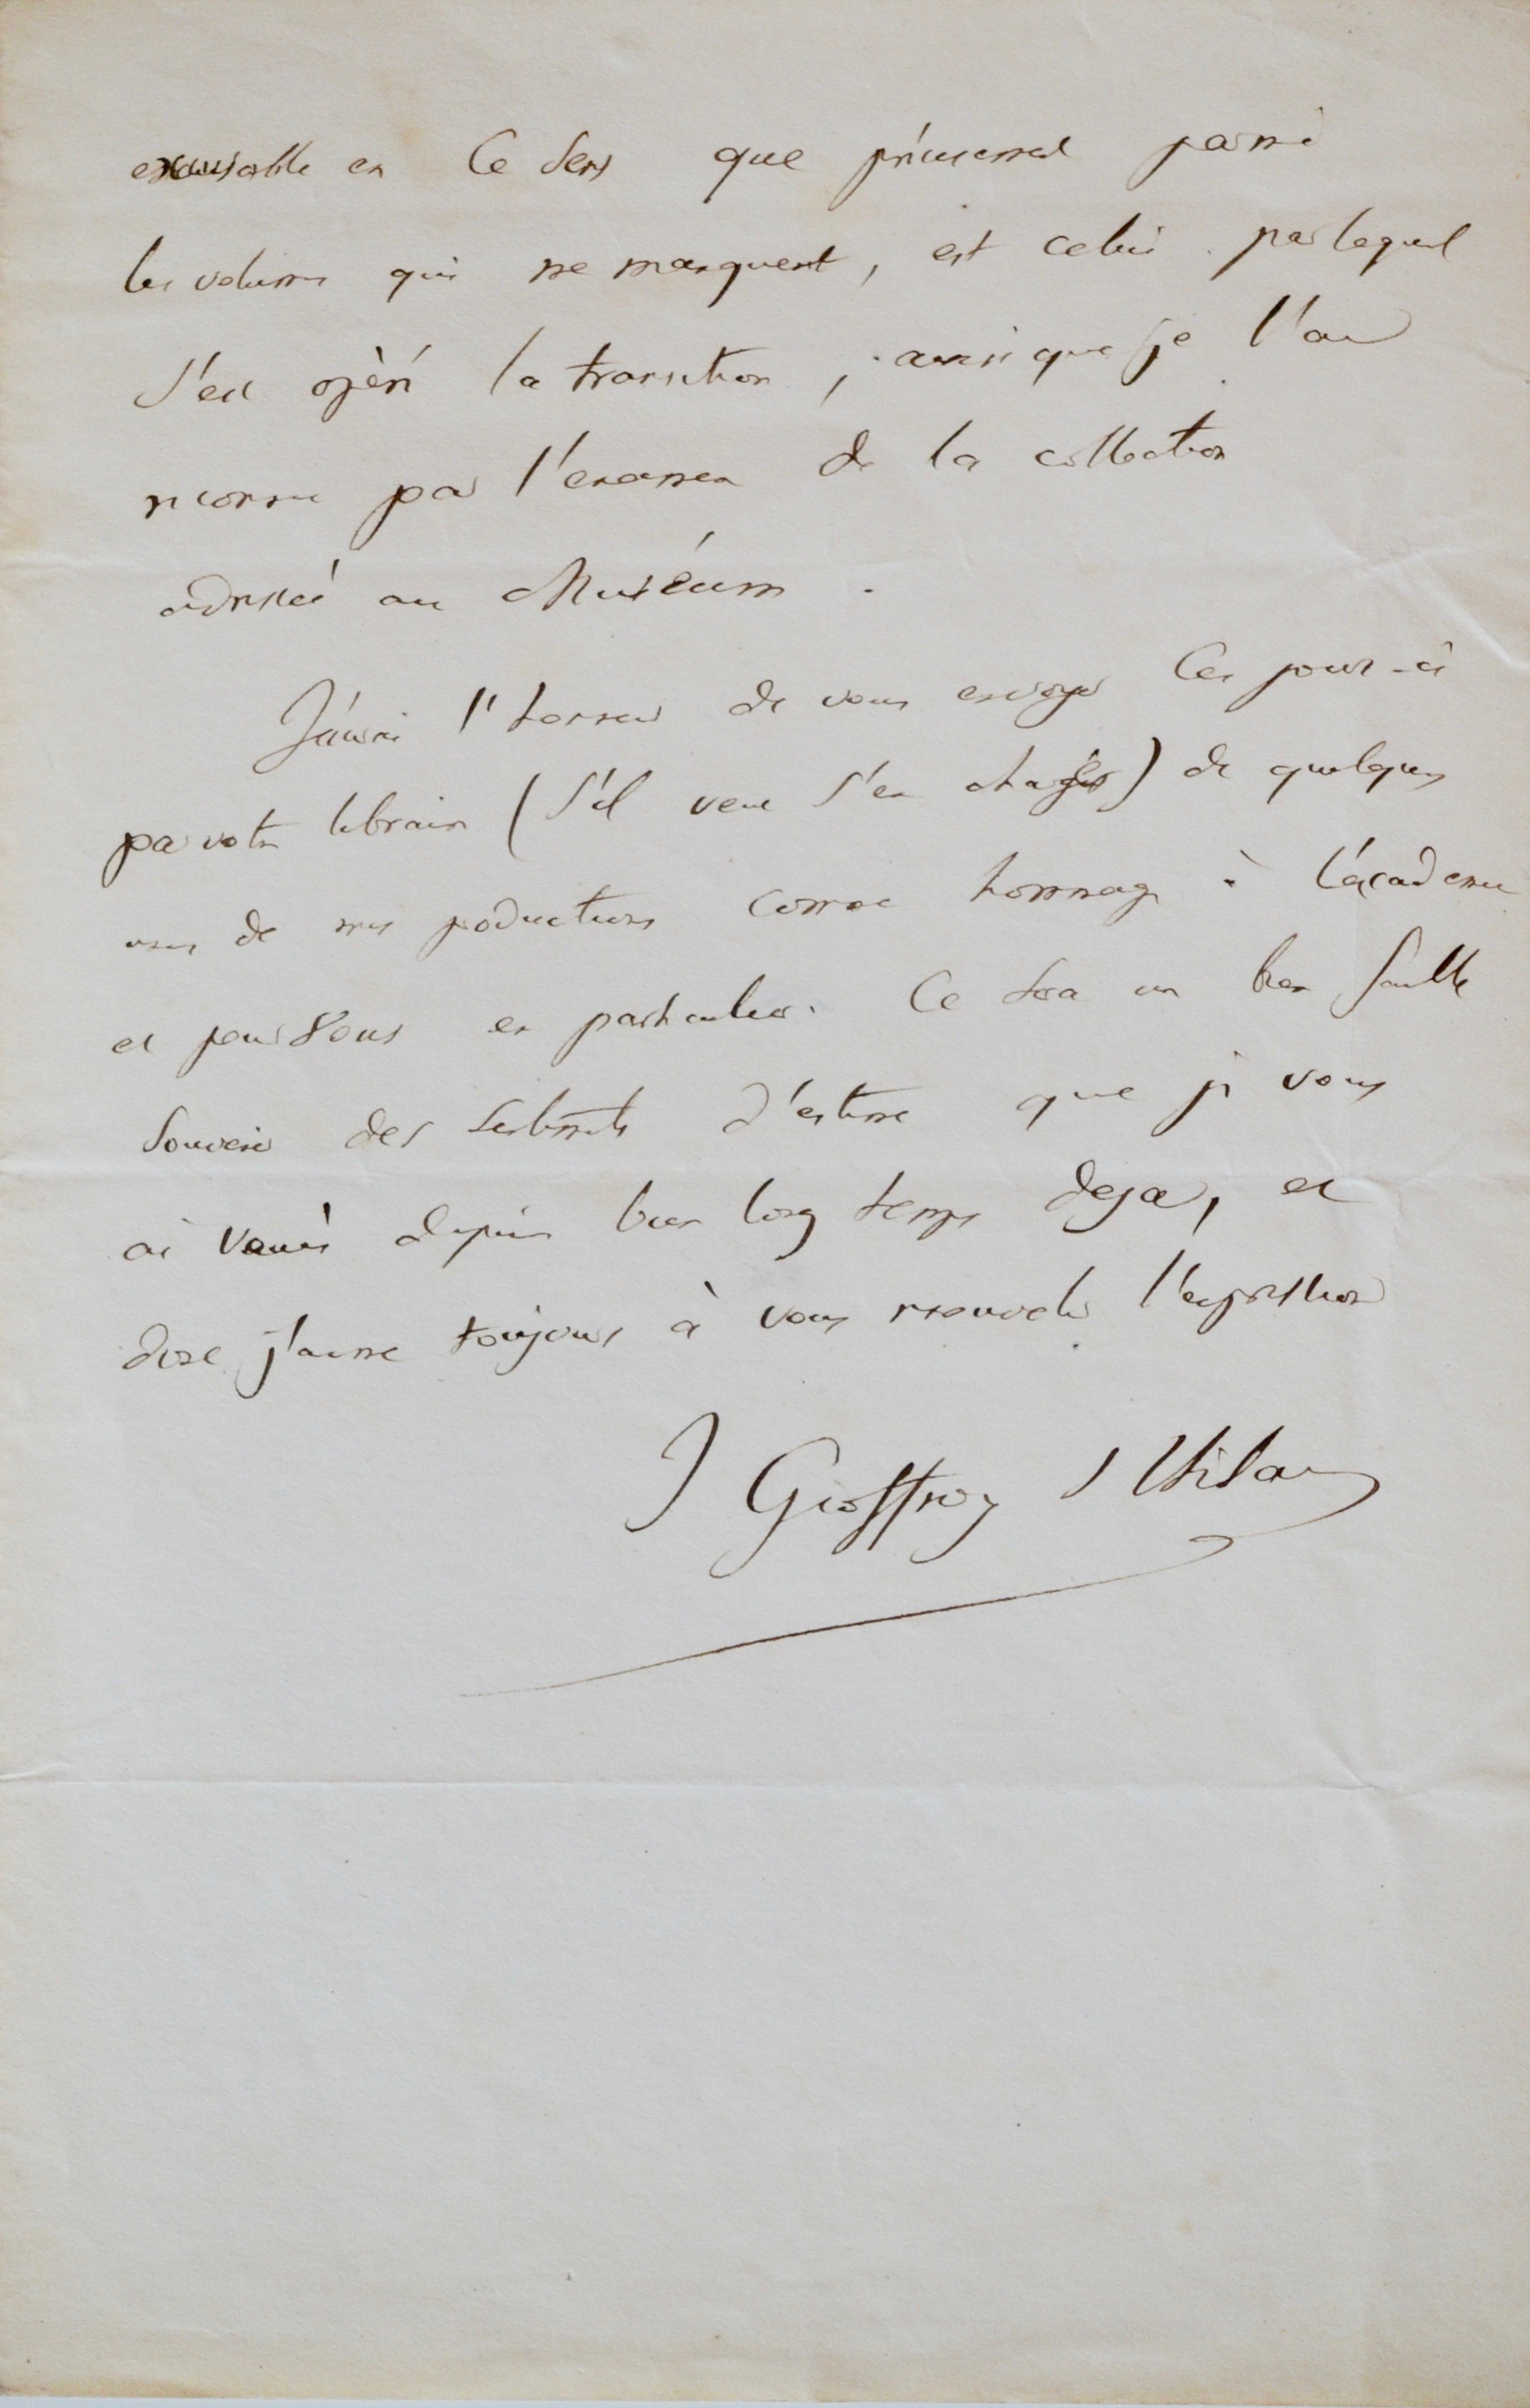 excusable en ce sens que précisement parmi
les volumes qui me manquent, est celui par lequel
s'est opéré la transition, ainsi que je l'ai
reconnu par l'examen de la collection
adressée au Muséum.
J'aurai l'honneur de vous envoyer ces jours-ci
par votre libraire (s'il veut s'en charger) de quelques
unes de mes productions comme hommage à l'académie
et pour vous en particulier. Ce sera un bien faible
souvenir des sentiments d'estime que je vous
ai voués depuis bien long temps deja, et
dont j'aime toujours à vous renouveler l'expression
J Geoffroy St Hilaire